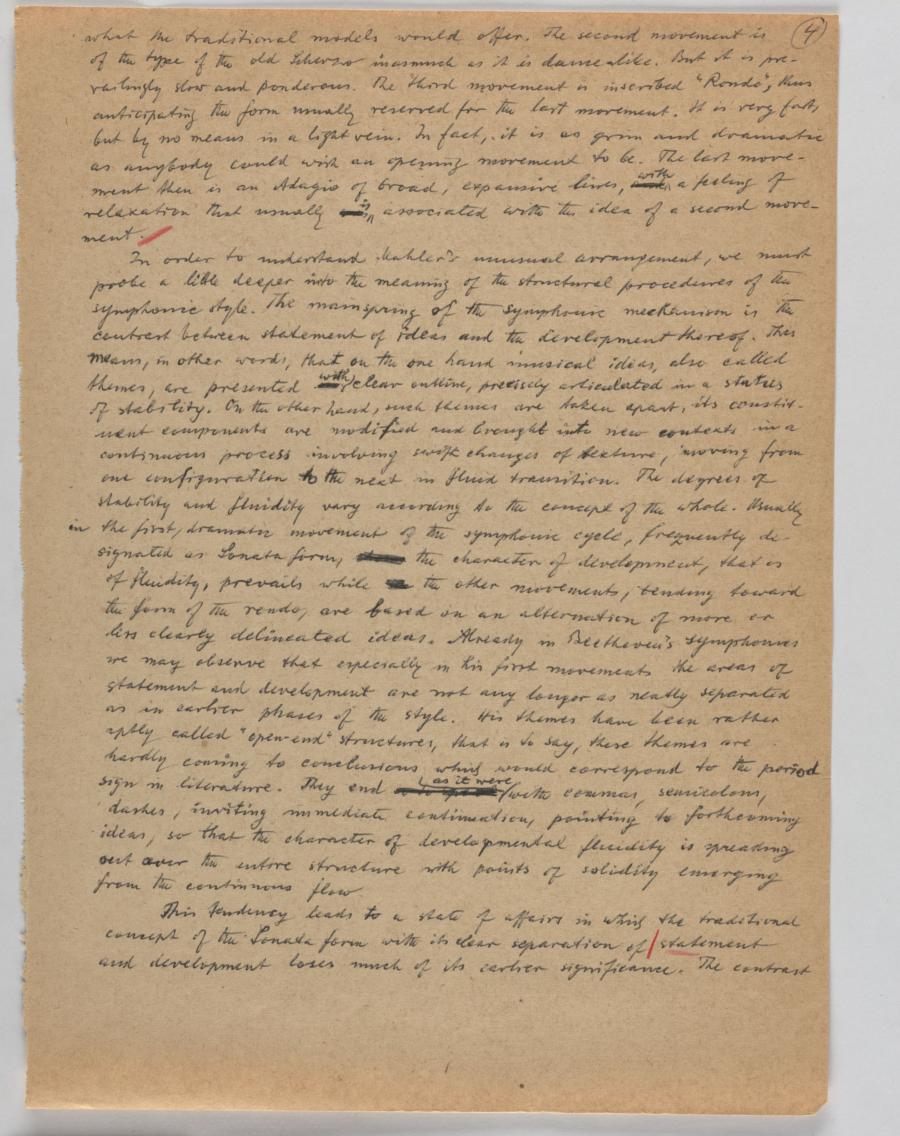 4
what the traditional models would offer. The second movement is
of the type of the old Scherzo inasmuch as it is dancealike. But it is pre-
vailingly slow and ponderous. The third movement is inscribed "Rondo", thus
anticipating the form usually reserved for the last movement. It is very fast,
but by no means in a light vein. In fact, it is as grim and dramatic
as anybody could wish an opening movement to be. The last move-
ment then is an Adagio of broad, expansive lines, with a feeling of
relaxation that usually is associated with the idea of a second move-
ment.
In order to understand Mahler's unusual arrangement, we must
probe a little deeper into the meaning of the structural procedures of the
symphonic style. The mainspring of the symphonic mechanism is the
contrast between statement of ideas and the development thereof. This
means, in other words, that on the one hand musical ideas, also called
themes, are presented with clear outline, precisely articulated in a status
of stability. On the other hand, such themes are taken apart, its constit-
uent components are modified and brought into new contexts in a
continuous process involving swift changes of texture, moving from
one configuration to the next in fluid transition. The degrees of
stability and fluidity vary according to the concept of the whole. Usually
in the first, dramatic movement of the symphonic cycle, frequently de-
signated as Sonata form, the character of development, that is
of fluidity, prevails while the other movements, tending toward
the form of the rondo, are based on an alternation of more or
less clearly delineated ideas. Already in Beethoven's symphonies
we may observe that especially in his first movements the areas of
statement and development are not any longer as neatly separated
as in earlier phases of the style. His themes have been rather
aptly called "open-end" structures, that is to say, these themes are
hardly coming to conclusions which would correspond to the period
sign in literature. They end (as it were) with commas, semicolons,
dashes, inviting immediate continuation, pointing to forthcoming
ideas, so that the character of developmental fluidity is spreading
out over the entire structure with points of solidity emerging
from the continuous flow
This tendency leads to a state of affairs in which the traditional
concept of the Sonata form with its clear separation of statement
and development loses much of its earlier significance. The contrast